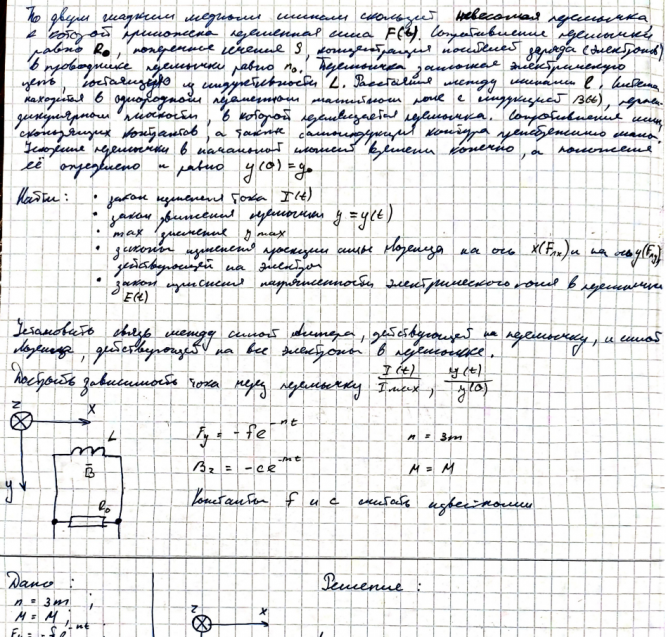 По двум гладким медным шинам скользит невесомая перемычка,
к которой приложена переменная сила F(t). Сопротивление перемычки
равно R₀, поперечное сечение S, концентрация носителей заряда (электронов)
в проводнике перемычки равно n₀. Перемычка, замыкая электрическую
цепь, состоящую из индуктивности L. Расстояние между шинами l. Система
находится в однородном переменном магнитном поле с индукцией B(t), перпен-
дикулярном плоскости, в которой перемещается перемычка. Сопротивление шин,
скользящих контактов, а также самоиндукция контура пренебрежимо малы.
Ускорение перемычки в начальный момент времени конечно, а положение
её определено и равно y(0) = y₀
Найти: • закон изменения тока I(t)
• закон движения перемычки y = y(t)
• max значение y max
• законы изменения проекции силы Лоренца на ось x(Fлx) и на ось y(Fлy)
действующей на электрон
• закон изменения напряженности электрического поля в перемычке
E(t)
Установить связь между силой Ампера, действующей на перемычку, и силой
Лоренца, действующей на все электроны в перемычке.
Построить зависимость тока через перемычку I(t)/Imax, y(t)/y(0)
z x
L
Fy = -fe^-nt n = 3m
B̄
y
Bz = -ce^-mt M = M
R₀
Константы f и c считать известными
Дано: Решение:
n = 3m ;
M = M ;
z x
Fy = -fe^-nt